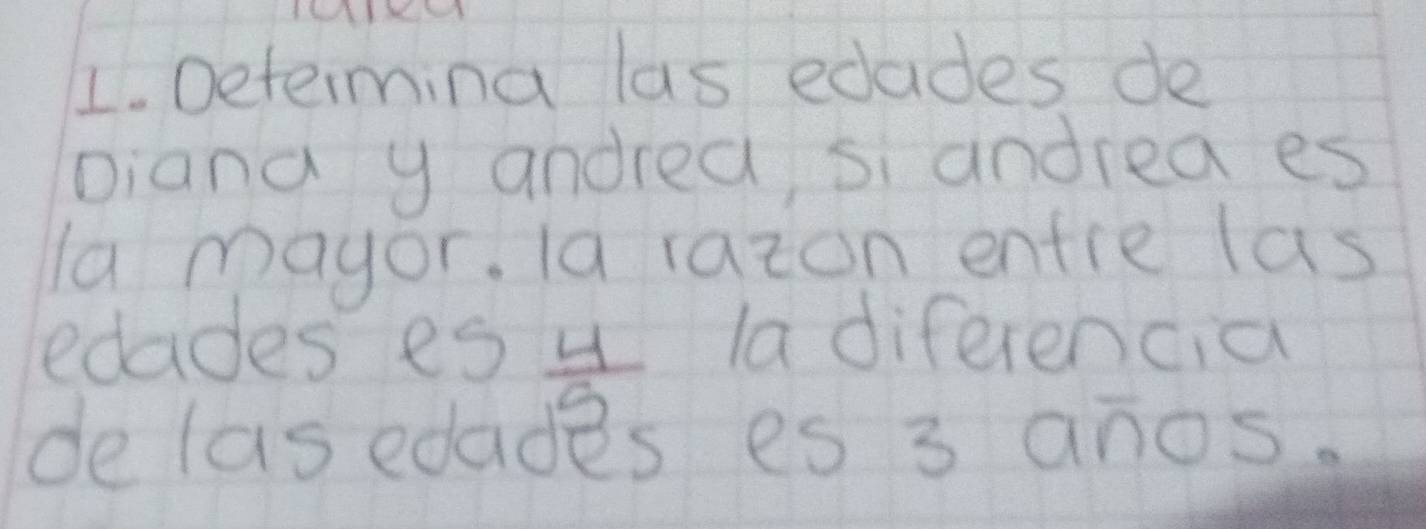 1. Determina las edades de
Diana y andrea, si andrea es
la mayor. la razon entre las
edades es 4/5 la diferencia
de las edades es 3 años.